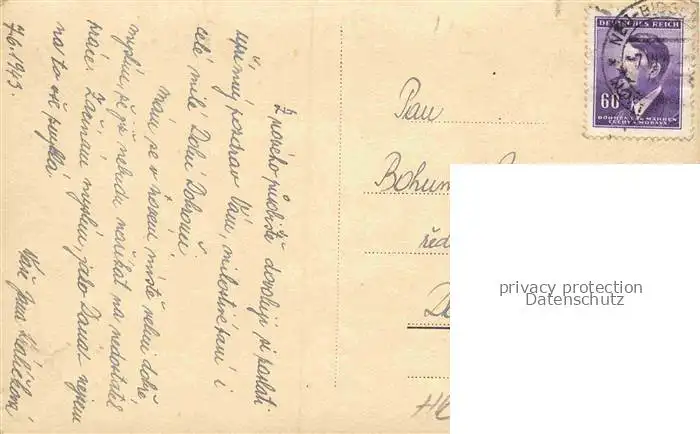 Z nového působiště dovoluji si poslati
upřímný pozdrav Vám, milostivá paní i
celé milé Dolní Dobrouči.
Mám se v novém místě velmi dobře,
myslím, že již nebudu naříkat na nedostatek
práce. Začínám myslím, jako nejsem
na to vše
Vaše Jana
7/6.1943.
Pan
Bohum
řed
HK
DEUTSCHES REICH
60
BÖHMEN UND MÄHREN
ČECHY A MORAVA
privacy protection
Datenschutz